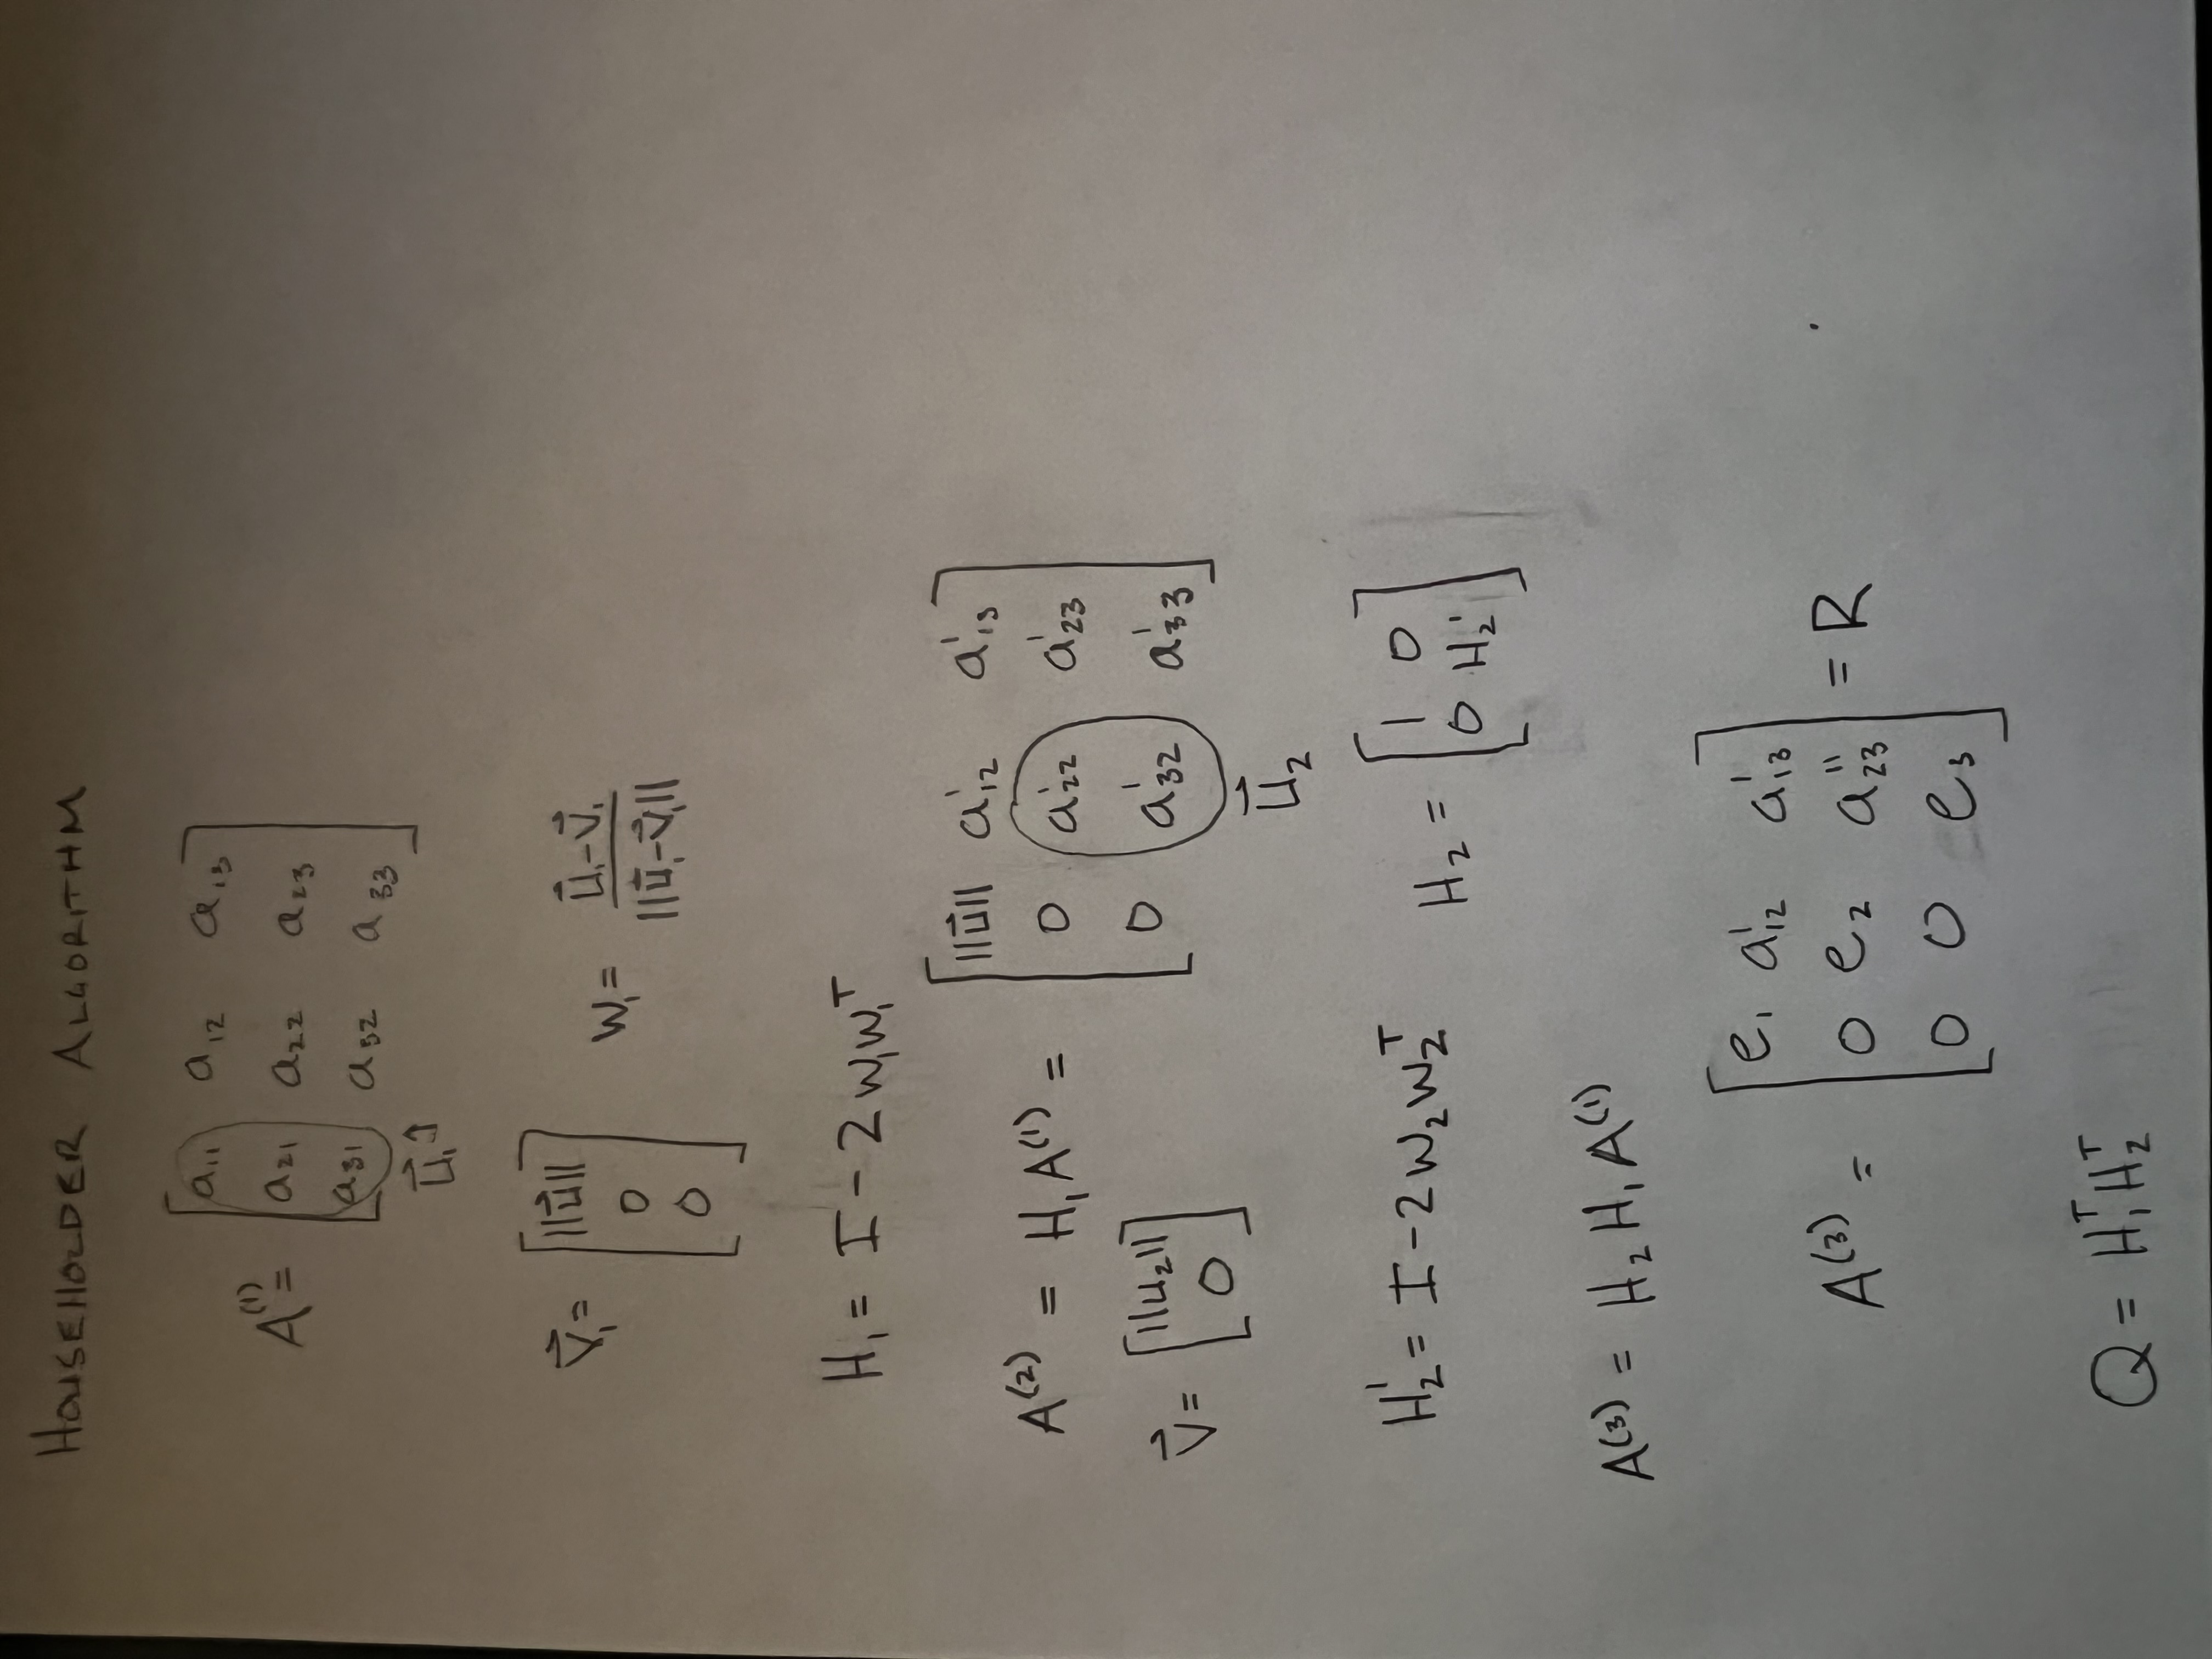 HOUSEHOLDER ALGORITHM
A⁽¹⁾ = [a₁₁ a₁₂ a₁₃
a₂₁ a₂₂ a₂₃
a₃₁ a₃₂ a₃₃]
u⃗₁ ↑
v⃗₁ = [||u⃗|| 0 0] w₁ = (u⃗₁ - v⃗₁) / ||u⃗₁ - v⃗₁||
H₁ = I - 2w₁w₁ᵀ
A⁽²⁾ = H₁A⁽¹⁾ = [||u⃗|| a'₁₂ a'₁₃
0 a'₂₂ a'₂₃
0 a'₃₂ a'₃₃]
v⃗ = [||u₂|| 0]
u⃗₂
H₂' = I - 2w₂w₂ᵀ H₂ = [1 0
0 H₂']
A⁽³⁾ = H₂H₁A⁽¹⁾
A⁽³⁾ = [e₁ a'₁₂ a'₁₃
0 e₂ a''₂₃
0 0 e₃] = R
Q = H₁ᵀH₂ᵀ